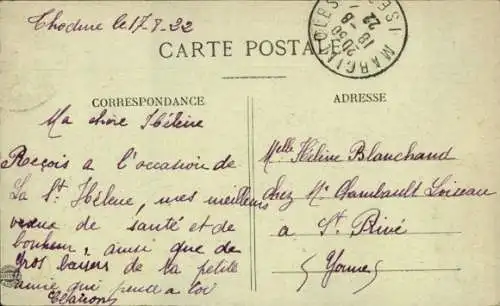 le 17-8-22
CARTE POSTALE
20 50
18 - 8
22
CORRESPONDANCE
ADRESSE
Ma chère Hélène
Reçois a l'occasion de
la St. Hélène, mes meilleurs
vœux de santé et de
bonheur, ainsi que de
gros baisers de ta petite
amie qui pense a toi
Melle Hélène Blanchard
chez Mr Chambault Loiseau
a St. Privé
(Yonne)